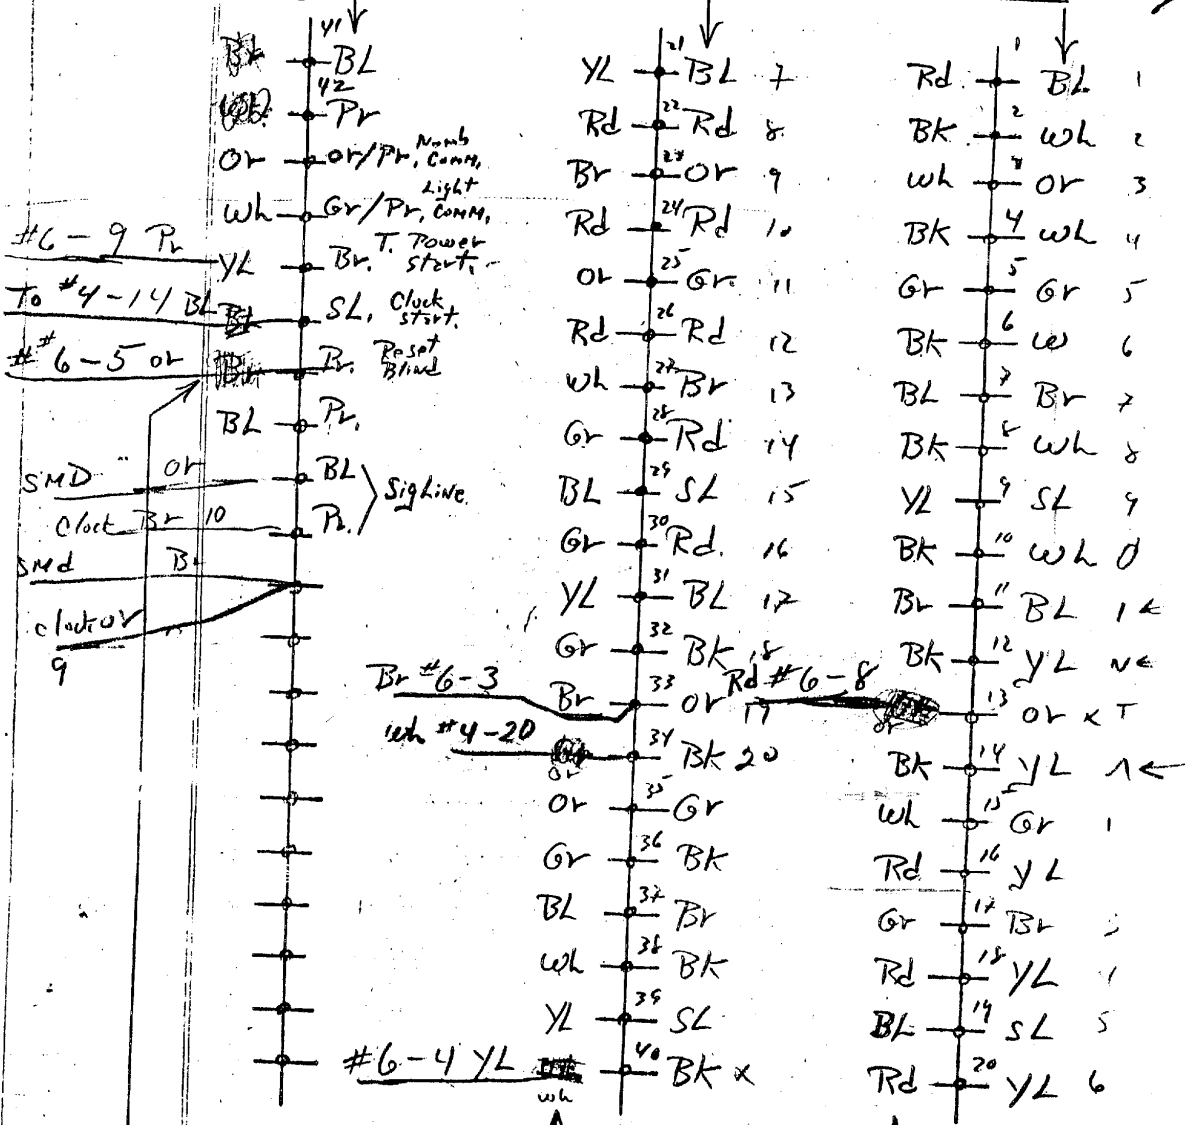 41
BL
42
Pr
Or Or/Pr, Numb Comm,
Wh Gr/Pr, Light Comm,
#6-9 Pr YL Br. T. Power start.
To #4-14 BL SL, Clock start.
##6-5 or Br. Reset Blind
BL Pr.
SMD " or BL
Sig Line
Clock Br 10 Pr.
SMd Br
Clock or
9
YL 21 BL 7
Rd 22 Rd 8
Br 23 Or 9
Rd 24 Rd 10
Or 25 Gr 11
Rd 26 Rd 12
Wh 27 Br 13
Gr 28 Rd 14
BL 29 SL 15
Gr 30 Rd. 16
YL 31 BL 17
Gr 32 BK 18
Br #6-3 Br 33 Or 19
Wh #4-20 Or 34 BK 20
Or 35 Gr
Gr 36 BK
BL 37 Br
Wh 38 BK
YL 39 SL
#6-4 YL wh 40 BK x
Rd 1 BL 1
BK 2 Wh 2
Wh 3 Or 3
BK 4 Wh 4
Gr 5 Gr 5
BK 6 W 6
BL 7 Br 7
BK 8 Wh 8
YL 9 SL 9
BK 10 Wh 0
Br 11 BL 1 ←
BK 12 YL N ←
Rd #6-8 or 13 Or x T
BK 14 YL ←
Wh 15 Gr 1
Rd 16 YL
Gr 17 Br
Rd 18 YL 1
BL 19 SL 5
Rd 20 YL 6